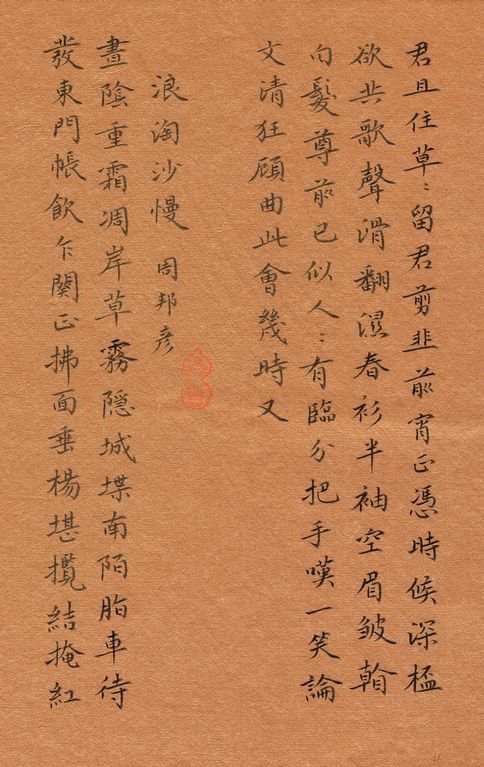 君且住草〻留君剪韭前宵正憑時候深桮
欲共歌聲滑翻濕春衫半袖空眉皱看
白髮尊前已似人〻有臨分把手嘆一笑論
文清狂顧曲此會幾時又
浪淘沙慢 周邦彥
晝陰重霜凋岸草霧隱城堞南陌脂車待
發東門帳飲乍闋正拂面垂楊堪攬結掩紅